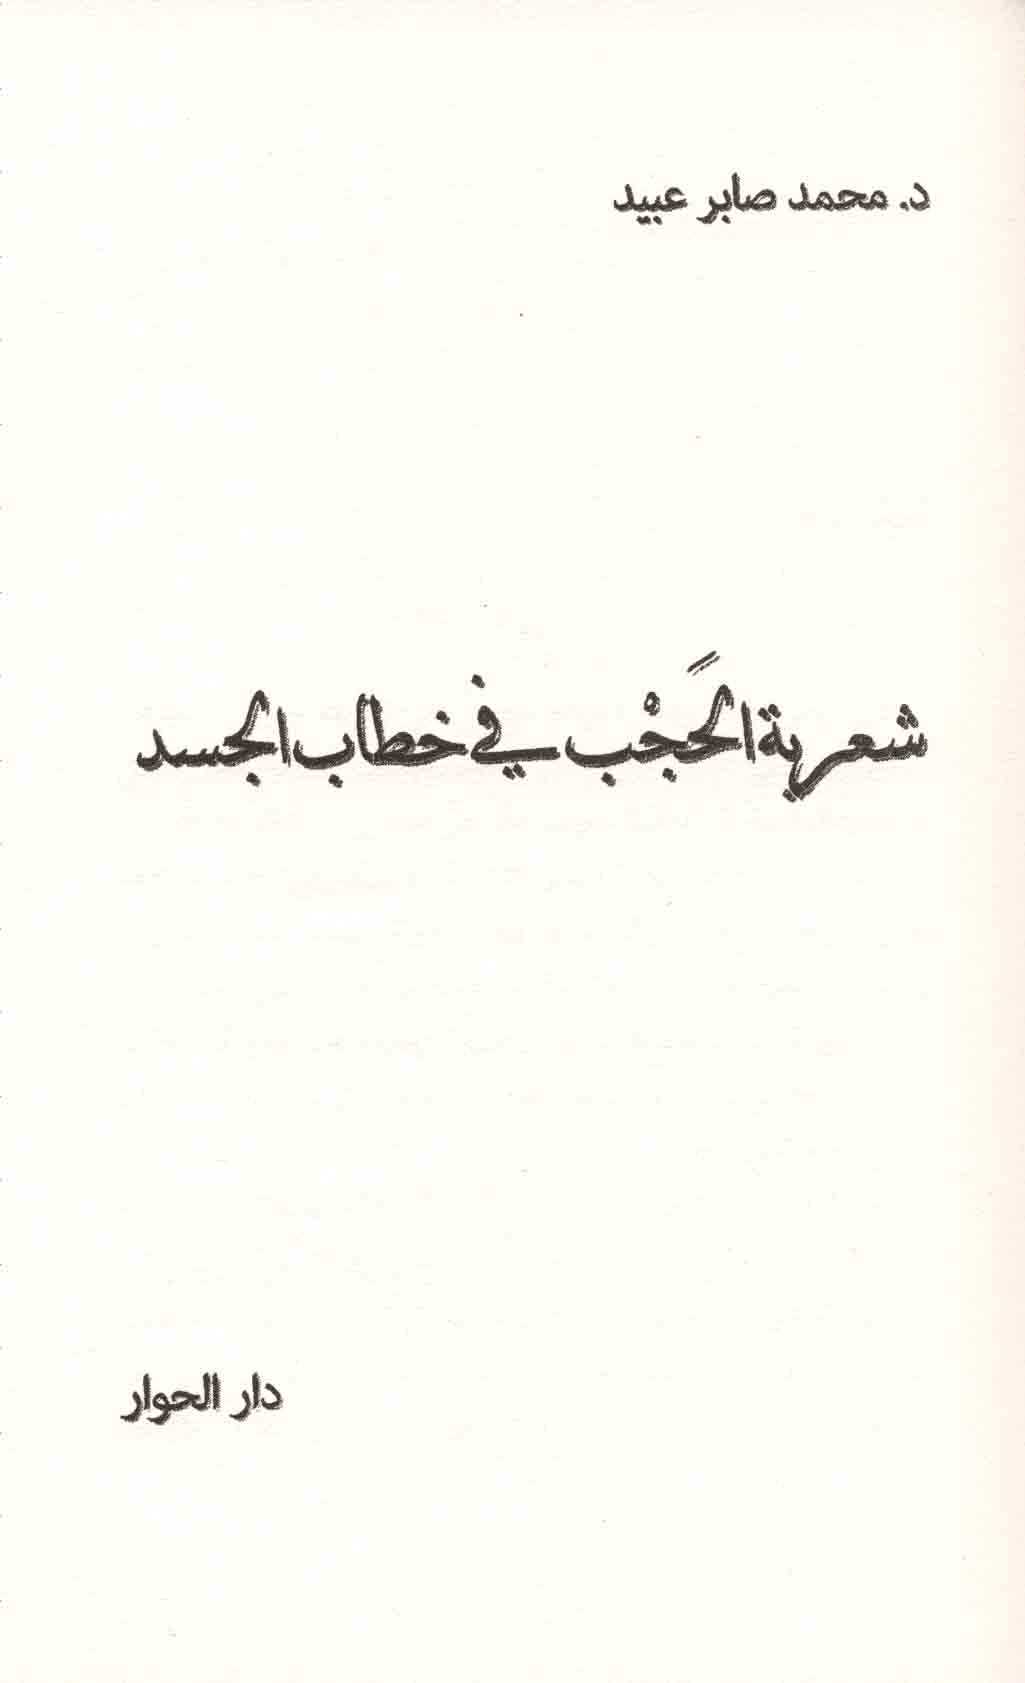 د. محمد صابر عبيد
شعرية الحَجْب في خطاب الجسد
دار الحوار